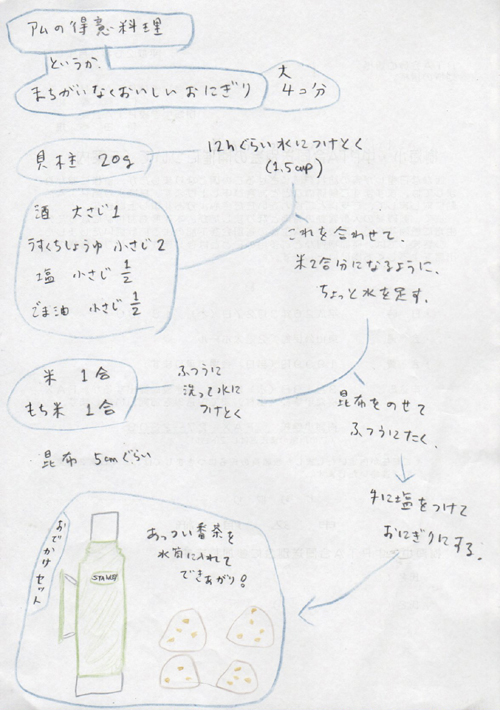 アムの得意料理
というか、
まちがいなくおいしいおにぎり
大
4コ分
貝柱 20g
12hぐらい水につけとく
(1.5cup)
酒 大さじ1
うすくちしょうゆ 小さじ2
塩 小さじ1/2
ごま油 小さじ1/2
これを合わせて、
米2合分になるように、
ちょっと水を足す。
米 1合
もち米 1合
ふつうに
洗って水に
つけとく
昆布 5cmぐらい
昆布をのせて
ふつうにたく。
手に塩をつけて
おにぎりにする。
おでかけセット
STANLEY
あっつい番茶を
水筒に入れて
できあがり!